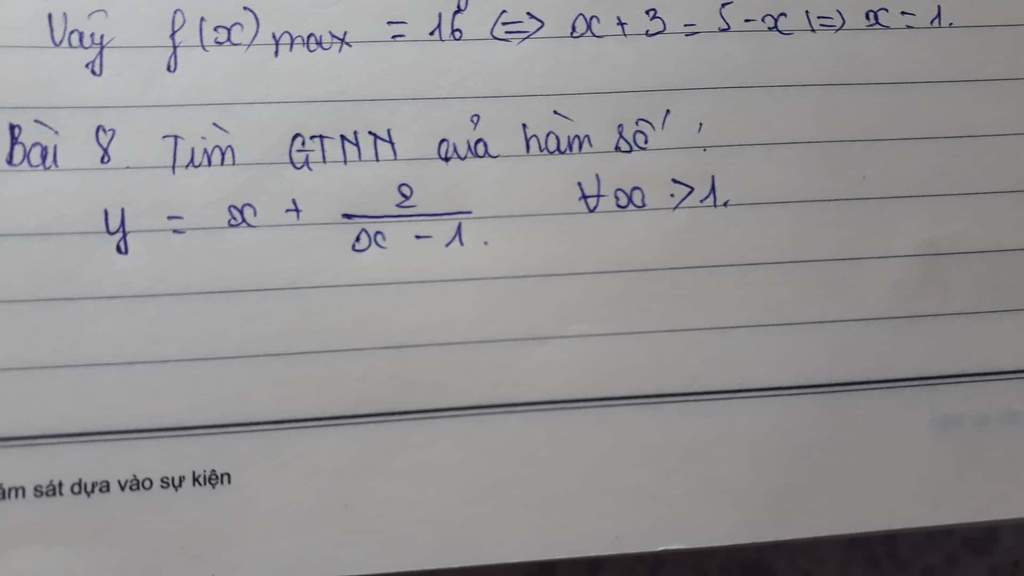 Vậy f(x) max = 16 (=) x + 3 = 5 - x (=) x = 1.
Bài 8 Tìm GTNN của hàm số:
y = x + 2/(x - 1). ∀x > 1.
sát dựa vào sự kiện